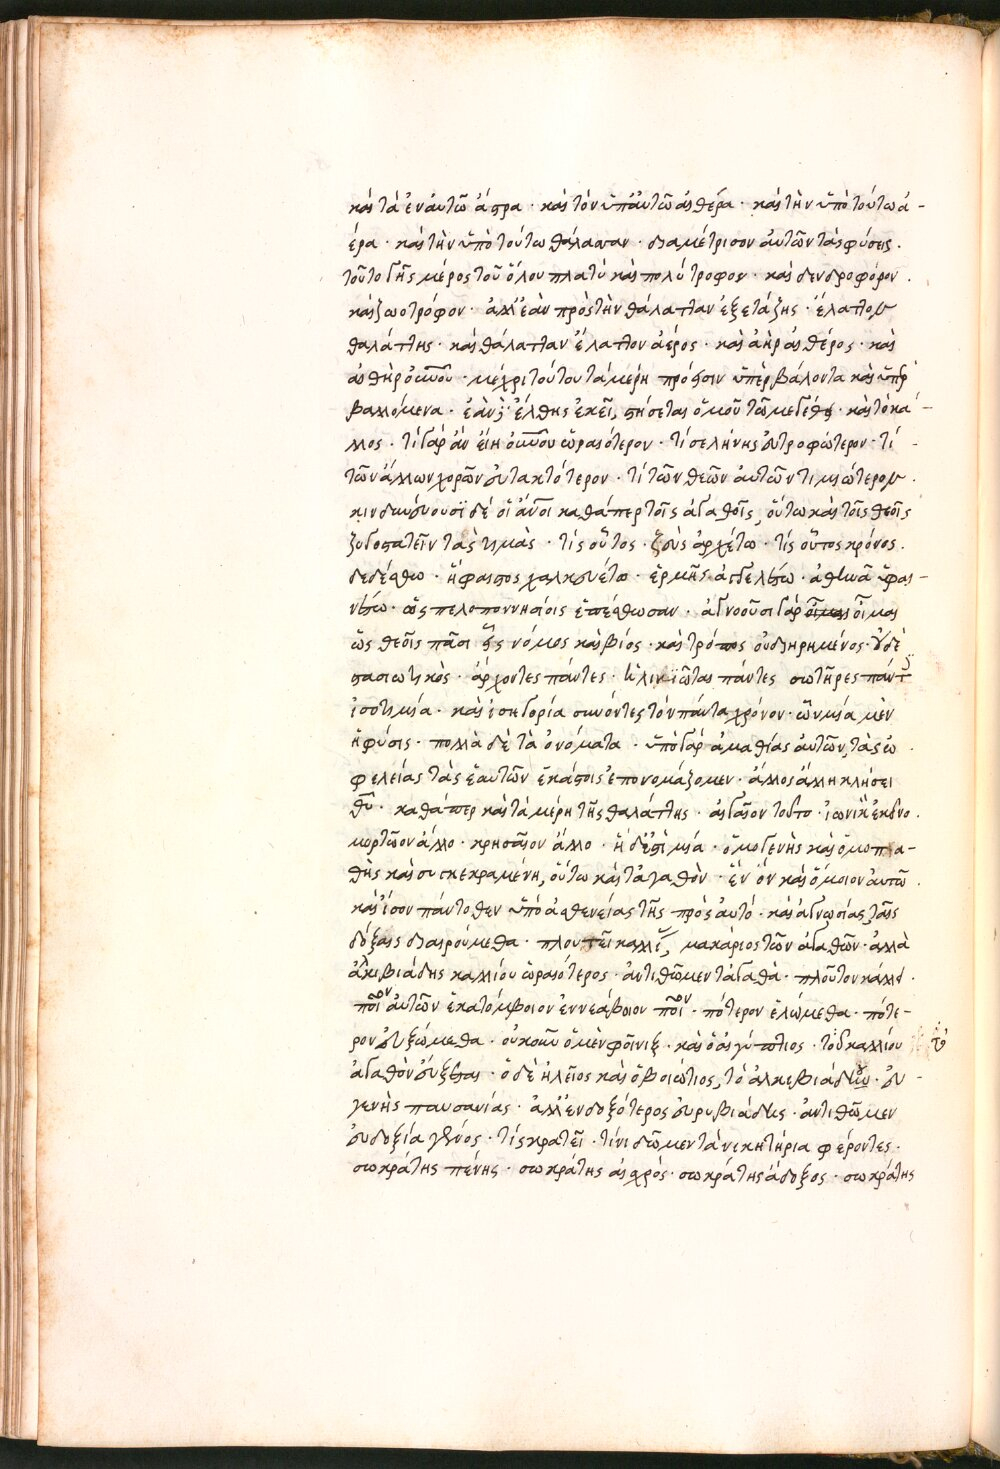 καὶ τὰ ἐν αὐτῶ ἄστρα · καὶ τὸν ὑπ' αὐτῶ αἰθέρα · καὶ τὴν ὑπὸ τούτω ἀ-
έρα · καὶ τὴν ὑπὸ τούτω θάλασσαν · διαμέτρισον αὐτῶν τὰς φύσεις ·
τοῦτο γῆς μέρος τοῦ ὅλου πλατὺ καὶ πολύτροφον · καὶ δενδροφόρον ·
καὶ ζωοτρόφον · ἀλλ' ἐὰν πρὸς τὴν θάλατταν ἐξετάζης · ἔλαττον
θαλάττης · καὶ θάλατταν ἔλαττον ἀέρος · καὶ ἀὴρ αἰθέρος · καὶ
αἰθὴρ οὐνοῦ · μέχρι τούτου τὰ μέρη πρόσεισιν ὑπερβάλοντα καὶ ὑπερ
βαλλόμενα · ἐὰν δ' ἔλθης ἐκεῖ, στήσεται ὁμοῦ τῶ μεγέθει · καὶ τὸ κά-
λλος · τί γὰρ ἂν εἴη οὐνοῦ ὡραιότερον · τί σελήνης εὐτροφώτερον · τί
τῶν ἄλλων χορῶν εὐτακτότερον · τί τῶν θεῶν αὐτῶν τιμιώτερον ·
κινδυνεύουσι δὲ οἱ ἄνοι καθάπερ τοῖς ἀγαθοῖς, οὕτω καὶ τοῖς θεοῖς
ζυγοστατεῖν τὰς τιμάς · τίς οὗτος · ζεὺς ἀρχέτω · τίς οὗτος κρόνος ·
δεδέσθω · ἥφαιστος χαλκευέτω · ἑρμῆς ἀγγελλέτω · ἀθηνᾶ ὑφαι-
νέτω · ὡς πελοποννησίοις ἑπέσθωσαν · ἀγνοοῦσι γὰρ οἶμαι
ὡς θεοῖς πᾶσι εἷς νόμος καὶ βίος · καὶ τρόπος οὐ διηρημένος · οὐδὲ
στασιωτικός · ἄρχοντες πάντες · ἡλικιῶται πάντες σωτῆρες πάντ
ἰσοτιμία · καὶ ἰσηγορία συνόντες τὸν πάντα χρόνον · ὧν μία μὲν
ἡ φύσις · πολλὰ δὲ τὰ ὀνόματα · ὑπὸ γὰρ ἀμαθίας αὐτῶν, τὰς ὠ
φελείας τὰς ἑαυτῶν ἕκαστοις ἐπονομάζομεν · ἄλλος ἄλλη κλήσει
θῦ · καθάπερ καὶ τὰ μέρη τῆς θαλάττης · αἰγαῖον τοῦτο · ἰωνικὸν ἐκεῖνο ·
μυρτῶον ἄλλο · κρησαῖον ἄλλο · ἡ δέ ἐστι μία · ὁμογενὴς καὶ ὁμοπα-
θὴς καὶ συγκεκραμένη, οὕτω καὶ τἀγαθὸν · ἓν ὂν καὶ ὅμοιον αὐτῶ ·
καὶ ἴσον πάντοθεν ὑπὸ ἀσθενείας τῆς πρὸς αὐτό · καὶ ἀγνωσίας, ταῖς
δόξαις διαιρούμεθα · πλουτεῖ καλλί, μακάριος τῶν ἀγαθῶν · ἀλλὰ
ἀλκιβιάδης καλλίου ὡραιότερος · ἀντιθῶμεν τἀγαθὰ · πλοῦτον κάλλει ·
ποῖον αὐτῶν ἑκατόμβοιον ἐννεάβοιον ποῖον · πότερον ἑλώμεθα · πότε-
ρον εὐξώμεθα · οὐκοῦν ὁ μὲν φοῖνιξ · καὶ ὁ αἰγύπτιος · τὸ καλλίου
ἀγαθὸν εὔξεται · ὁ δὲ ἠλεῖος καὶ ὁ βοιώτιος, τὸ ἀλκιβιάδου · εὐ-
γενὴς παυσανίας · ἀλλ' ἐνδοξότερος εὐρυβιάδης · ἀντιθῶμεν
εὐδοξία γένος · τίς κρατεῖ · τίνι δῶμεν τὰ νικητήρια φέροντες ·
σωκράτης πένης · σωκράτης αἰσχρός · σωκράτης ἄδοξος · σωκράτης